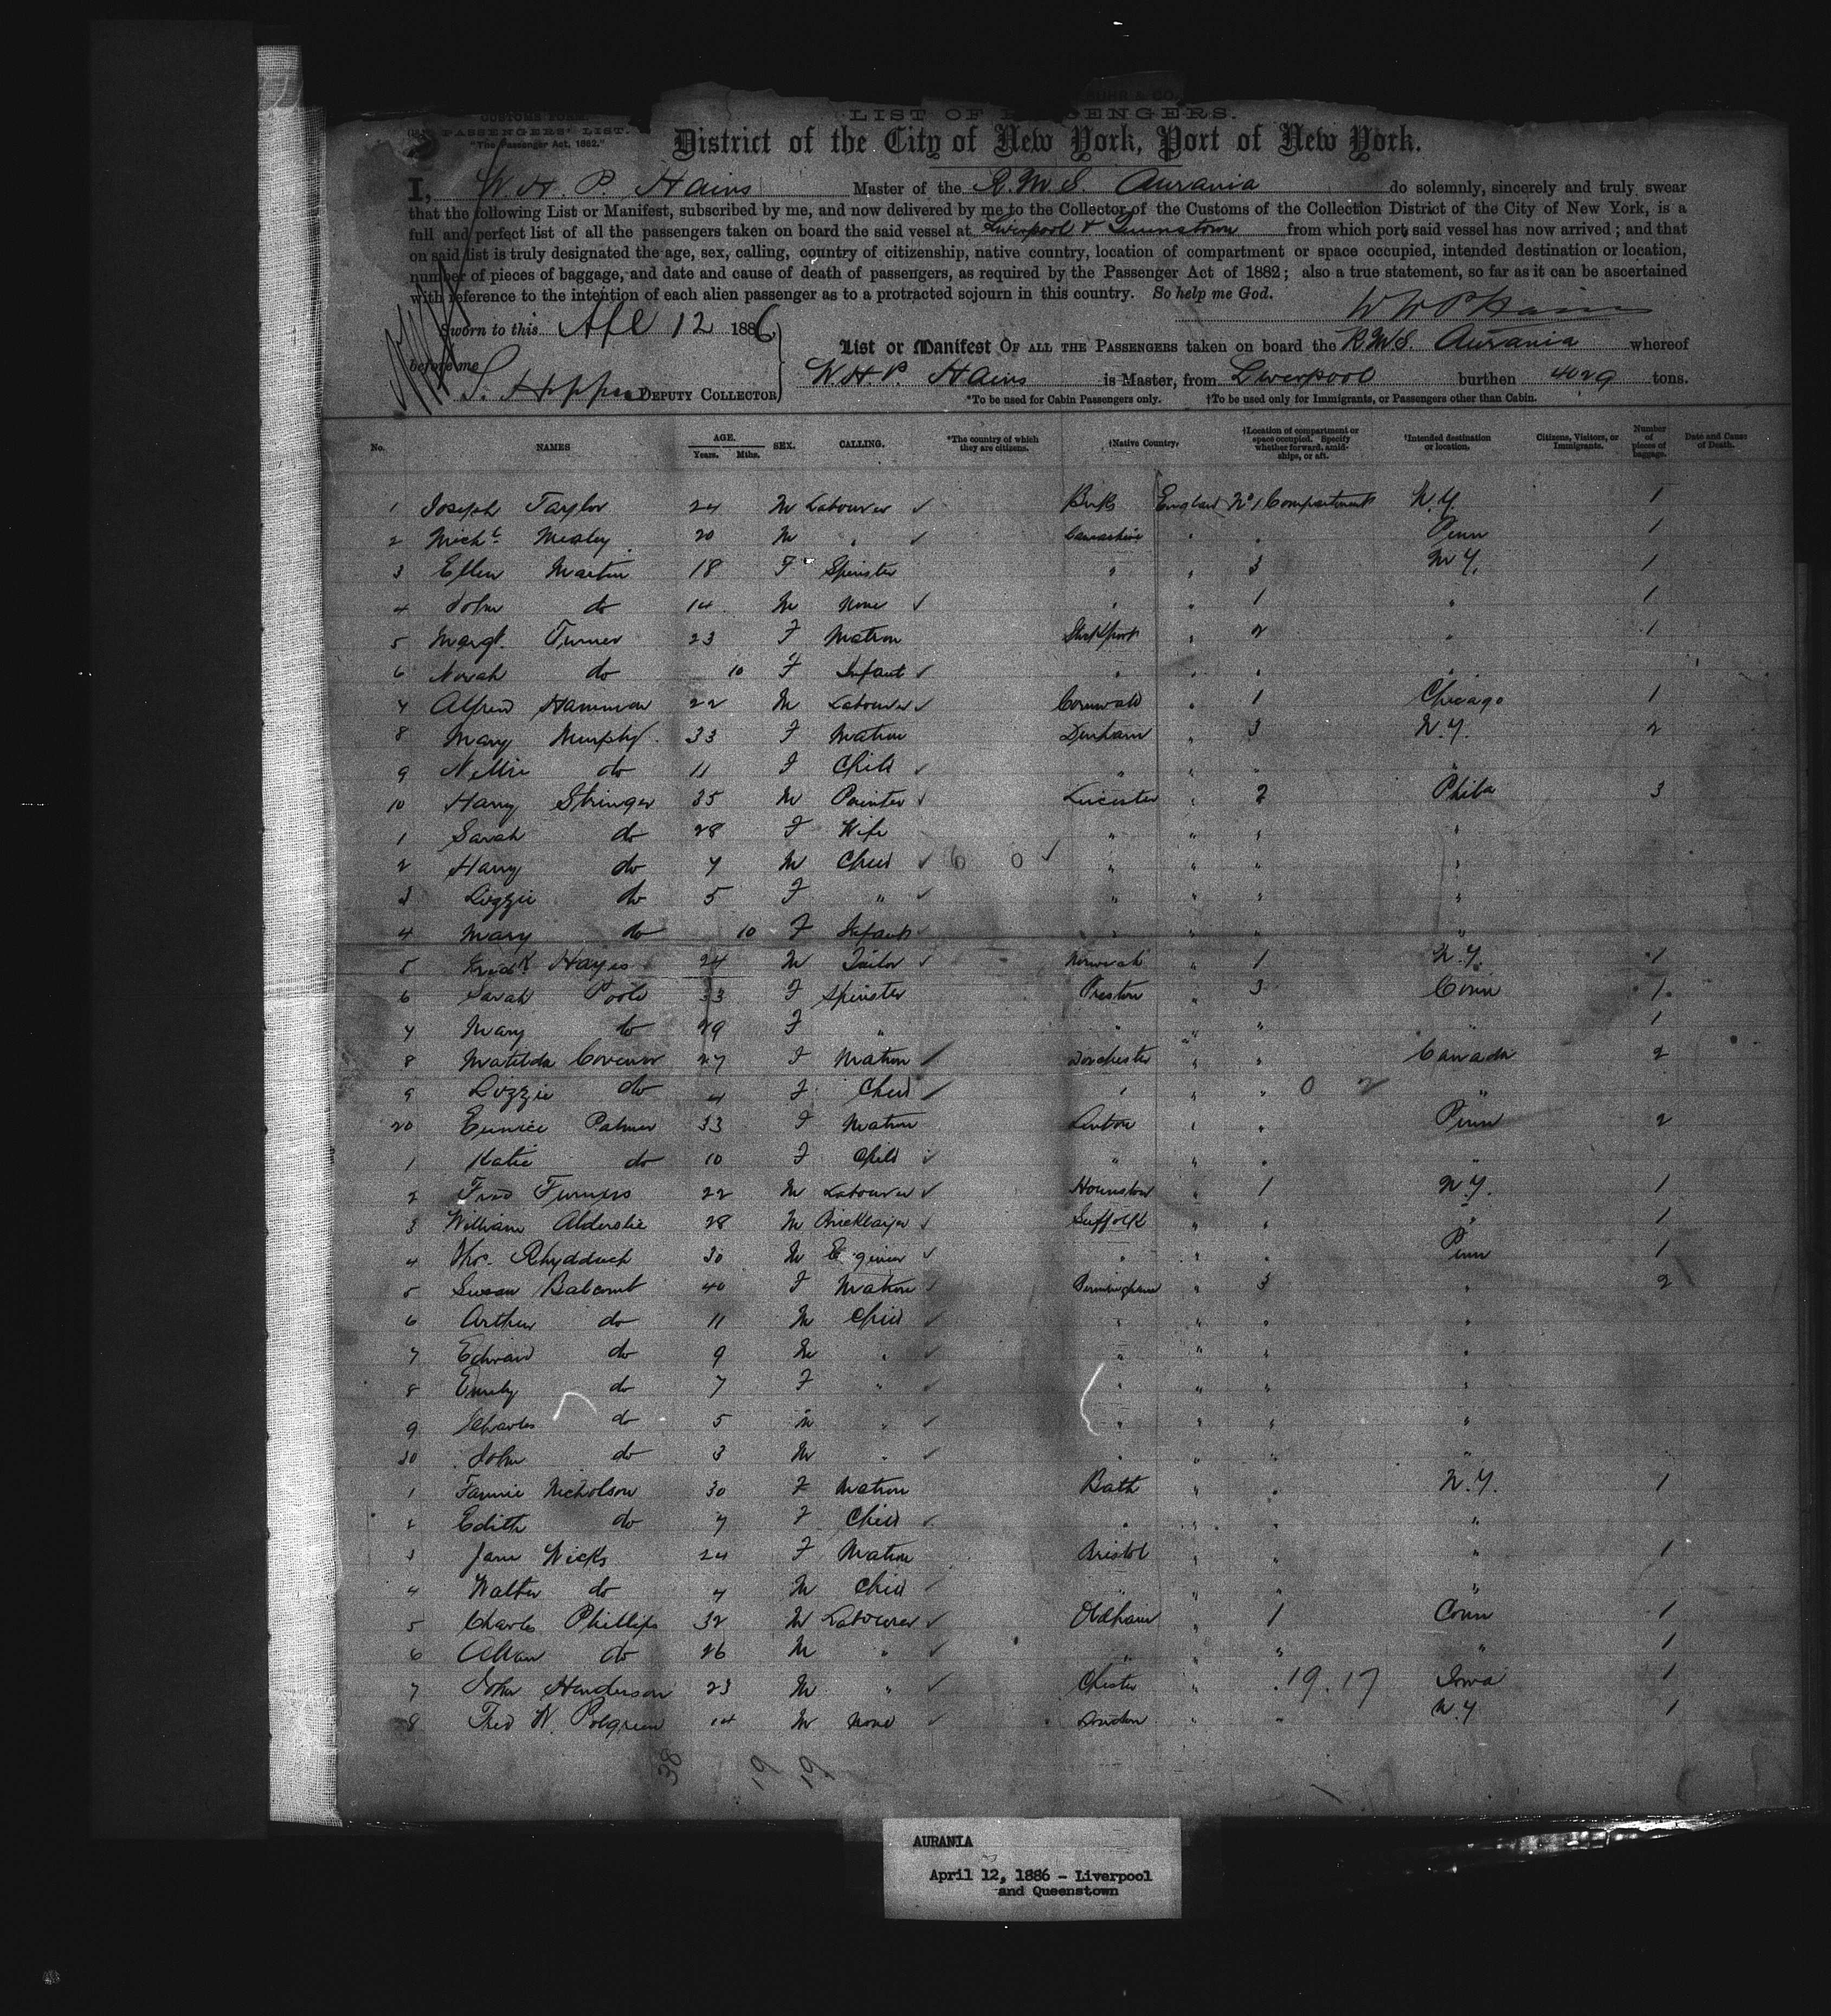 CUSTOMS FORM.
PASSENGERS' LIST.
"The Passenger Act, 1882."
LIST OF PASSENGERS.
District of the City of New York, Port of New York.
I, W. H. P. Hains Master of the R.M.S. Aurania do solemnly, sincerely and truly swear
that the following List or Manifest, subscribed by me, and now delivered by me to the Collector of the Customs of the Collection District of the City of New York, is a
full and perfect list of all the passengers taken on board the said vessel at Liverpool & Queenstown from which port said vessel has now arrived; and that
on said list is truly designated the age, sex, calling, country of citizenship, native country, location of compartment or space occupied, intended destination or location,
number of pieces of baggage, and date and cause of death of passengers, as required by the Passenger Act of 1882; also a true statement, so far as it can be ascertained
with reference to the intention of each alien passenger as to a protracted sojourn in this country. So help me God.
W H P Hains
Sworn to this Apl 12 1886
before me
DEPUTY COLLECTOR
List or Manifest OF ALL THE PASSENGERS taken on board the R.M.S. Aurania whereof
W H. P. Hains is Master, from Liverpool burthen 4029 tons.
*To be used for Cabin Passengers only. †To be used only for Immigrants, or Passengers other than Cabin.
No. NAMES AGE. Years. Mths. SEX. CALLING. *The country of which they are citizens. †Native Country. †Location of compartment or space occupied. Specify whether forward, amidships, or aft. †Intended destination or location. Citizens, Visitors, or Immigrants. Number of pieces of baggage. Date and Cause of Death.
1 Joseph Taylor 24 M Labourer ✓ England No 1 Compartment N.Y. 1
2 Michl 20 M " ✓ Lancashire " " Penn 1
3 Ellen Martin 18 F Spinster " " 3 N.Y. 1
4 John do 14 M None ✓ " " 1 " 1
5 Margt. Turner 23 F Matron Stockport " 2 " 1
6 Norah do 10 F Infant ✓ " " "
7 Alfred 22 M Labourer ✓ Cornwall " 1 Chicago 1
8 Mary Murphy 33 F Matron Durham " 3 N.Y. 2
9 Nellie do 11 F Child ✓ " " " "
10 Harry Stringer 35 M Painter ✓ Leicester " 2 Phila 3
1 Sarah do 28 F Wife " " " "
2 Harry do 7 M Child ✓ 6 0 ✓ " " " "
3 Lizzie do 5 F " ✓ " " " "
4 Mary do 10 F Infant ✓ " " " "
5 Fredk Hayes 24 M Tailor ✓ Norwich " 1 N.Y. 1
6 Sarah Poole 33 F Spinster Preston " 3 Conn 1
7 Mary do 29 F " " " " " 1
8 Matilda 27 F Matron ✓ Dorchester " " Canada 2
9 Lizzie do 4 F Child ✓ " " " 0 2 "
20 Eunice Palmer 33 F Matron " " Penn 2
1 Katie do 10 F Child ✓ " " " "
2 Fred Furness 22 M Labourer ✓ Hounslow " 1 N.Y. 1
3 William Alderslie 28 M Bricklayer ✓ Suffolk " " " 1
4 Thos. 30 M Engineer ✓ " " " Penn 1
5 Susan Balcomb 40 F Matron ✓ Birmingham " 3 " 2
6 Arthur do 11 M Child ✓ " " " "
7 Edward do 9 M " ✓ " " " "
8 Emily do 7 F " ✓ " " " "
9 Charles do 5 M " ✓ " " " "
30 John do 3 M " ✓ " " " "
1 Fannie Nicholson 30 F Matron Bath " " N.Y. 1
2 Edith do 7 F Child ✓ " " " "
3 Jane Wicks 24 F Matron Bristol " " " 1
4 Walter do 7 M Child ✓ " " " "
5 Charles Phillips 32 M Labourer ✓ Oldham " 1 Conn 1
6 Allan do 26 M " ✓ " " " " 1
7 John Henderson 23 M " ✓ Chester " " 19.17 Iowa 1
8 Fred W. Polgreen 14 M None ✓ London " " N.Y 1
38 19 19
AURANIA
April 12, 1886 - Liverpool
and Queenstown